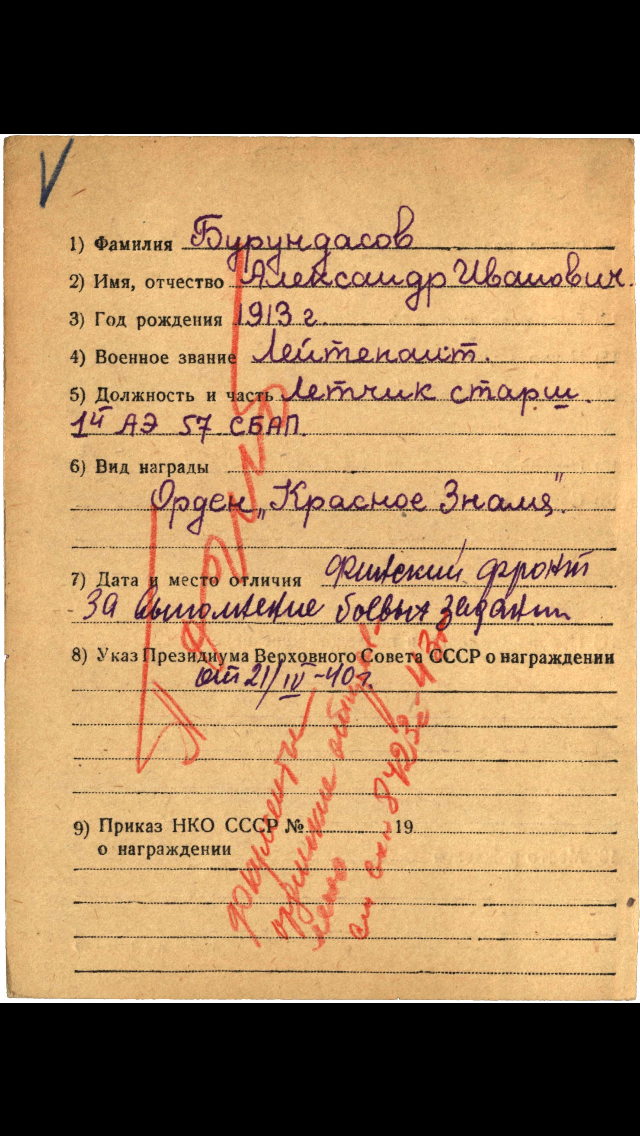 V
1) Фамилия Бурундасов
2) Имя, отчество Александр Иванович.
3) Год рождения 1913 г.
4) Военное звание Лейтенант.
5) Должность и часть Летчик старш.
1й АЭ 57 СБАП
6) Вид награды
Орден „Красное Знамя".
7) Дата и место отличия Финский фронт
За выполнение боевых задани
8) Указ Президиума Верховного Совета СССР о награждении
от 21/IV-40 г.
9) Приказ НКО СССР № 19
о награждении